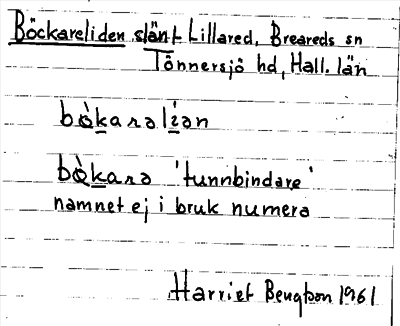 Böckareliden slänt Lillared, Breareds sn
Tönnersjö hd, Hall. län
bòkaralian
bòkara 'tunnbindare'
namnet ej i bruk numera
Harriet Bengtson 1961